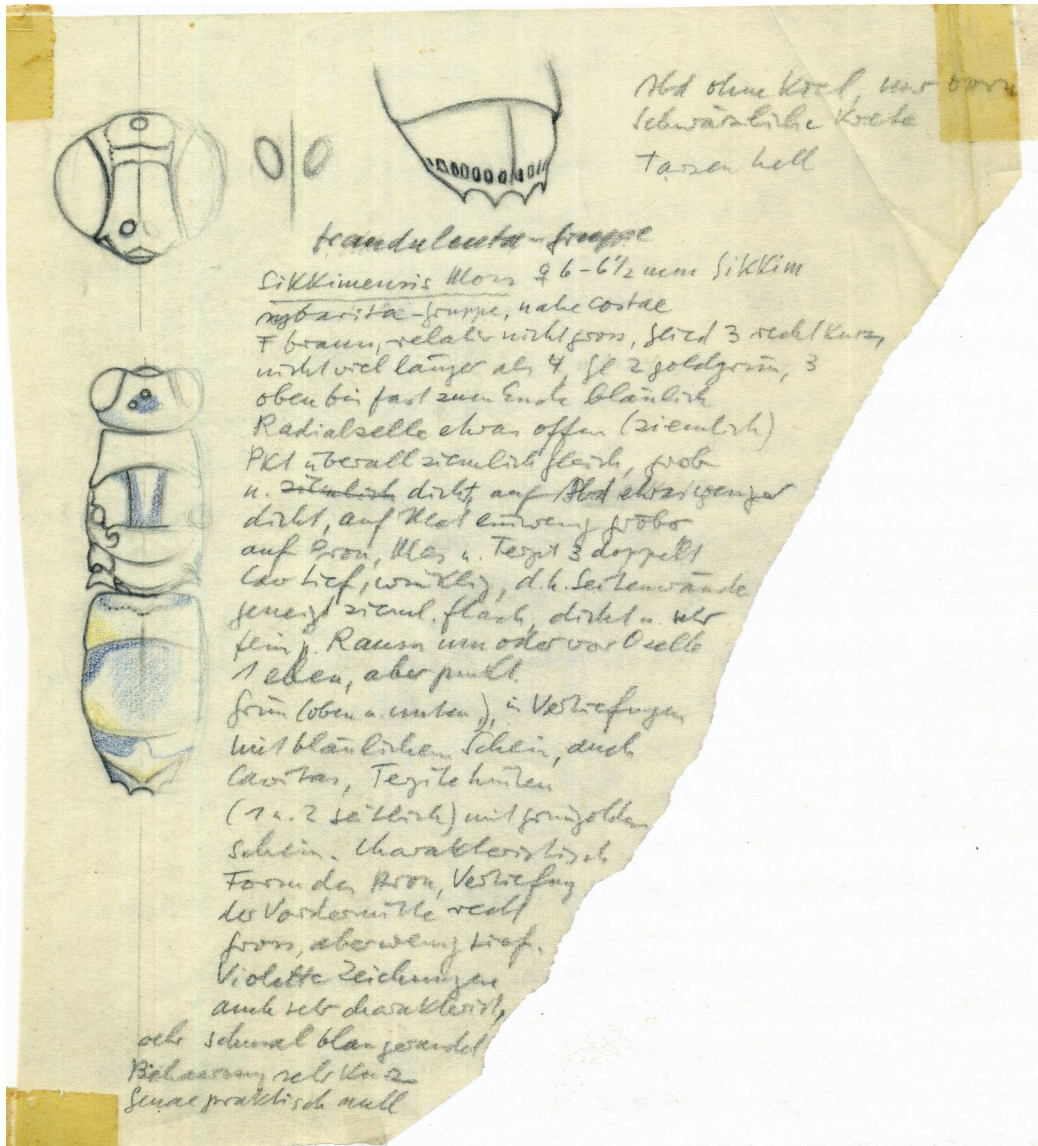 Abd ohne Kiel, nur vorn
schwärzliche Kerbe
Tarsen hell
-Gruppe
Sikkimensis Mocs ♀ 6-6½ mm Sikkim
sybarita-Gruppe, nahe costae
F braun, relativ nicht gross, Glied 3 recht kurz,
nicht viel länger als 4, Gl 2 goldgrün, 3
oben bis fast zum Ende bläulich
Radialzelle etwas offen (ziemlich)
PKT überall ziemlich gleich, grob
u. ziemlich dicht, auf Abd etwas weniger
dicht, auf Met ein wenig grober
auf Pron, Mes u. Tergit 3 doppelt
Cav tief, winklig, d.h. Seitenwände
geneigt, zieml. flach, dicht u. sehr
fein p. Raum um oder vor Ocelle
1 eben, aber punkt.
Grün (oben u. unten), in Vertiefungen
mit bläulichem Schein, auch
Cavitas, Tergite hinten
(1 u. 2 seitlich) mit grüngoldem
Schein. Charakteristisch
Form des Pron, Vertiefung
der Vordermitte recht
gross, aber wenig tief.
Violette Zeichnungen
auch sehr charakterist,
sehr schmal blau gerandet
Behaarung sehr kurz
Genae praktisch null